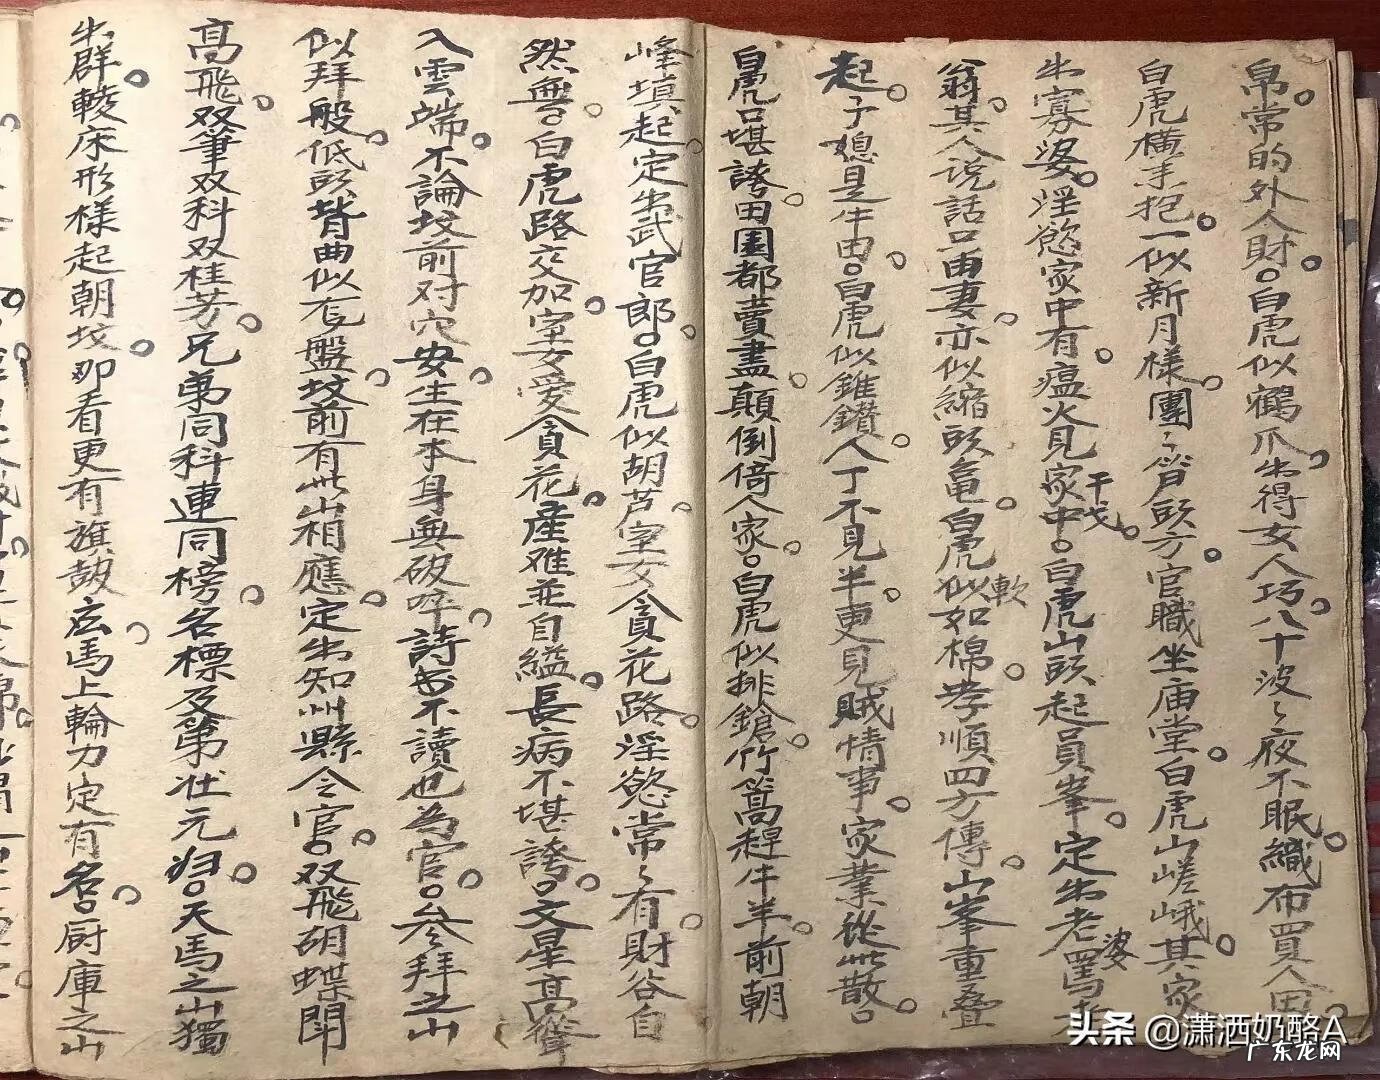 帛常的外人財白虎似鶴爪出得女人巧八十波々夜不眠織布買人田
白虎橫手抱一似新月樣團々皆頭方官職坐庙堂白虎山嵯峨其家
出寡婆淫慾家中有瘟火見家中干戈白虎山頭起員峯定出老罵老婆
翁其人说話只由妻亦似縮頭亀白虎似軟如棉孝順四方傳山峯重叠
起子媳是牛田白虎似錐鑚人丁不見半更見賊情事家業從此散
白虎只堪誇田園都賣盡顛倒倚人家白虎似排鎗竹篙趕牛羊前朝
峰填起定出武官郎白虎似胡芦室女貪花路淫慾常々有財谷自
然無白虎路交加室女愛貪花產难並自縊長病不堪誇文星高聳
入雲端不論坟前对穴安生在本身無破碎詩书不讀也為官參拜之山
似拜般低頭背曲似有盤坟前有此山相應定出知州縣令官双飛胡蝶鬥
高飛双筆双科双桂芳兄弟同科連同榜名標及第壮元归天馬之山獨
出群較床形樣起朝坟那看更有旗鼓庄馬上輪刀定有名厨庫之山
头条 @潇洒奶酪A
广东龙网